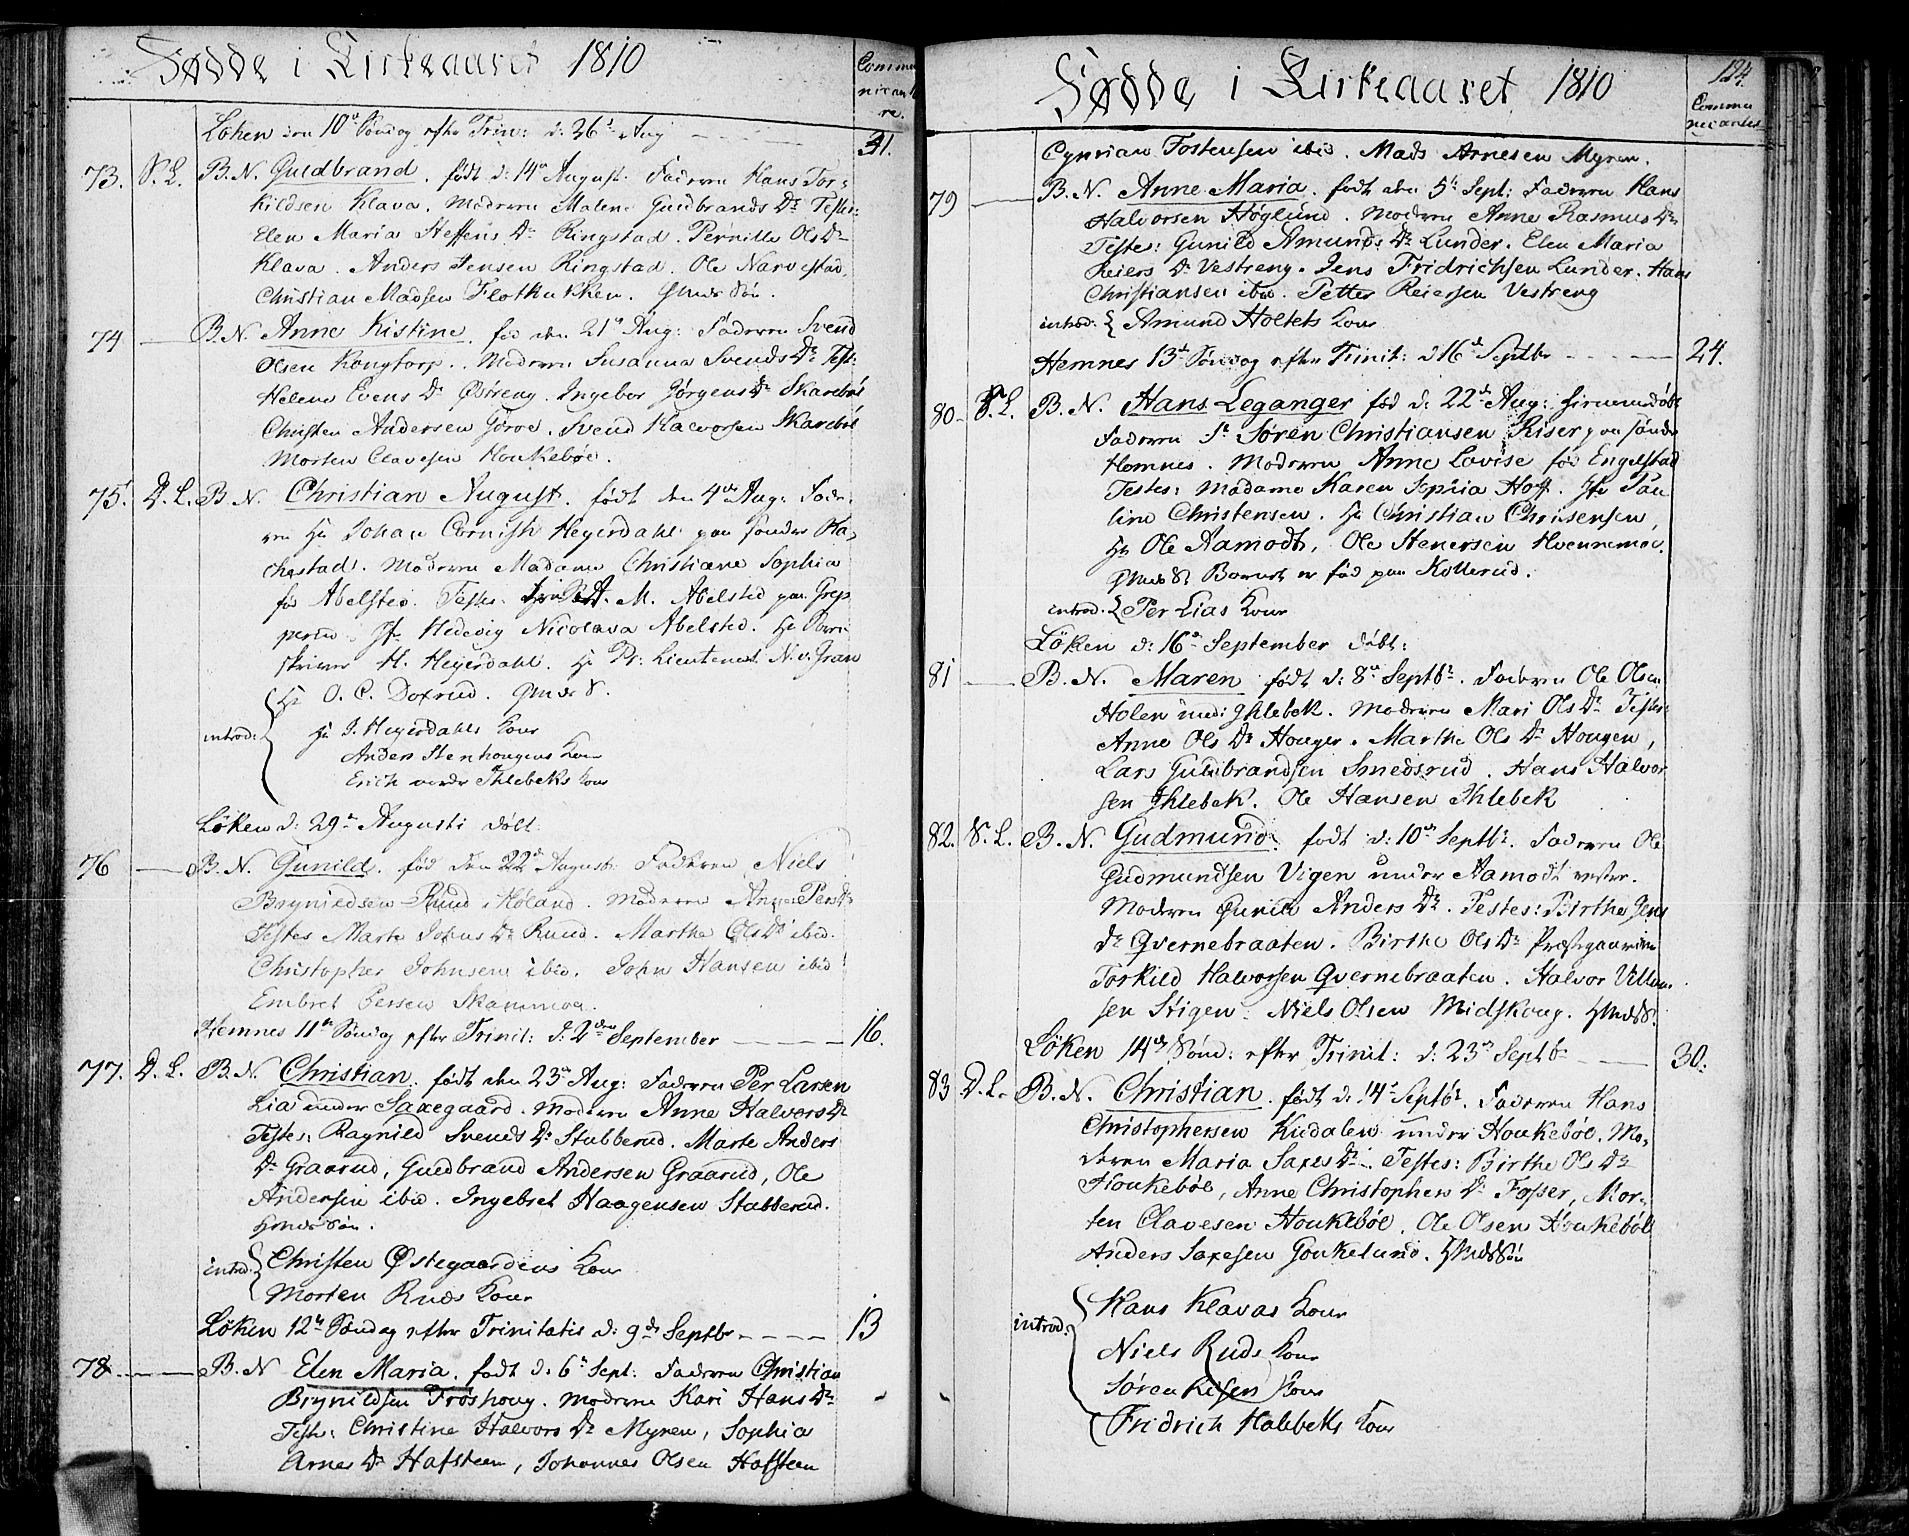 Fødde i Kirkeaaret 1810
Commu
nicant
re.
Løken den 10de Søndag efter Trin: d: 26de Aug 31.
73. S. L. B. N. Guldbrand. født d: 14de August: Faderen Hans Tor-
kildsen Klava. Moderen Malene Guldbrands Dr Testes:
Elen Maria Steffens Dr Ringstad. Pernille Ols Dr
Klava. Anders Jensen Ringstad. Ole Narvestad,
Christian Madsen Flotkukken.
74 B. N. Anne Kistine. fød den 21de Aug: Faderen Svend
Olsen Kongtorp. Moderen Susanna Svends Dr Test:
Helene Evens Dr Østreng. Ingebor Jørgens Dr Skarebøl
Christen Andersen Gorve. Svend Halvorsen Skarebøl
Morten Clavesen Houkebøe.
75. D. L. B. N. Christian August. født den 4de Aug: Fade-
ren Hr Johan Cornisk Heyerdahl paa Sønder Ha-
chestad. Moderen Madame Christiane Sophia
fød Abelsted. Testes: A. M. Abelsted paa Grep
perud. Jfr Hedevig Nicolava Abelsted. Hr Over-
skriver H. Heyerdahl. Hr Pr: Lieutenant N. v. Gran
Hr O. C. Doxrud.
introd: Hr J. Heyerdahls Kone
Anders Stenhougens Kone
Erich nordre Ihlebeks Kone
Løken d: 29de Augusti døbt:
76 B. N. Gunild. fød den 22de August: Faderen Niels
Brynildsen Ruud i Høland. Moderen Anne Pers Dr
Testes Marte Johns Dr Ruud. Marthe Ols Dr ibid.
Christopher Johnsen ibid. John Hansen ibid
Embret Persen Skammoen.
Hemnes 11te Søndag efter Trinit: d: 2den September 16.
77. D. L. B. N. Christian. født den 23de Aug: Faderen Per Larsen
Lia under Saxegaard. Moderen Anne Halvors Dr
Testes: Ragnild Svends Dr Stubberud. Marte Anders
Dr Graarud, Guldbrand Andersen Graarud, Ole
Andersen ibid. Ingebret Haagensen Stubberud.
introd: Christen Østegaardens Kone
Morten Ruds Kone
Løken 12te Søndag efter Trinitatis d: 9de Septbr 13
78. B. N Elen Maria. født d. 6te Sept: Faderen Christian
Brynildsen Froshoug. Moderen Kari Hans Dr
Testes: Christine Halvors Dr Myren, Sophia
Arnes Dr Hafsteen, Johannes Olsen Hafsteen
Fødde i Kirkeaaret 1810
124.
Commu
nicantes
Cyprian Fostensen ibid. Mads Arnesen Myren.
79 B. N. Anne Maria. født den 5te Sept: Faderen Hans
Halvorsen Høglund. Moderen Anne Rasmus Dr
Testes: Gunild Amunds Dr Lunder. Elen Maria
Reiers Dr Vestreng. Jens Fridrichsen Lunder. Hans
Christiansen ibid. Petter Reiersen Vestreng
introd: Amund Holtets Kone
Hemnes 13de Søndag efter Trinit: d 16de Septbr 24.
80. S. L. B. N. Hans Leganger fød d: 22de Aug: hiemmedøbt
Faderen Hr Søren Christiansen Riser paa søndre
Hemnes. Moderen Anne Lovise fød Engelstad
Testes: Madame Karen Sophia Hoff. Jfr Pau
line Christensen. Hr Christian Christensen,
Hr Ole Aamodt, Ole Stenersen Hvennemoe.
Barnet er fød paa Kollerud.
introd: Per Lias Kone
Løken d: 16de September døbt:
81 B. N. Maren født d: 8de Septbr. Faderen Ole Olsen
Holen under Ihlebek. Moderen Mari Ols Dr Testes:
Anne Ols Dr Hougen. Marthe Ols Dr Hougen,
Lars Guldbrandsen Smedsrud. Hans Halvor
sen Ihlebek. Ole Hansen Ihlebek
82. S. L. B. N. Gudmund. født d: 10de Septbr. Faderen Ole
Gudmundsen Vigen under Aamodt vestre.
Moderen Gunild Anders Dr. Testes: Birthe Jens
Dr Qvernebraaten. Birthe Ols Dr
Torkild Halvorsen Qvernebraaten. Halvor Villum
sen Stigen. Niels Olsen Midskoug.
Løken 14de Sønd: efter Trinit: d: 23de Septbr 30.
83 D. L. B. N. Christian. født d. 14de Septbr. Faderen Hans
Christophersen Kudalen under Houkebøe. Mo-
deren Maria Saxes Dr. Testes: Birthe Ols Dr
Houkebøe, Anne Christophers Dr Fosser, Mor-
ten Clavesen Houkebøe. Ole Olsen Houkebøl
Anders Saxesen Goukelund.
introd: Hans Klavas Kone
Niels Ruds Kone
Søren Risers Kone
Fridrich Holebeks Kone